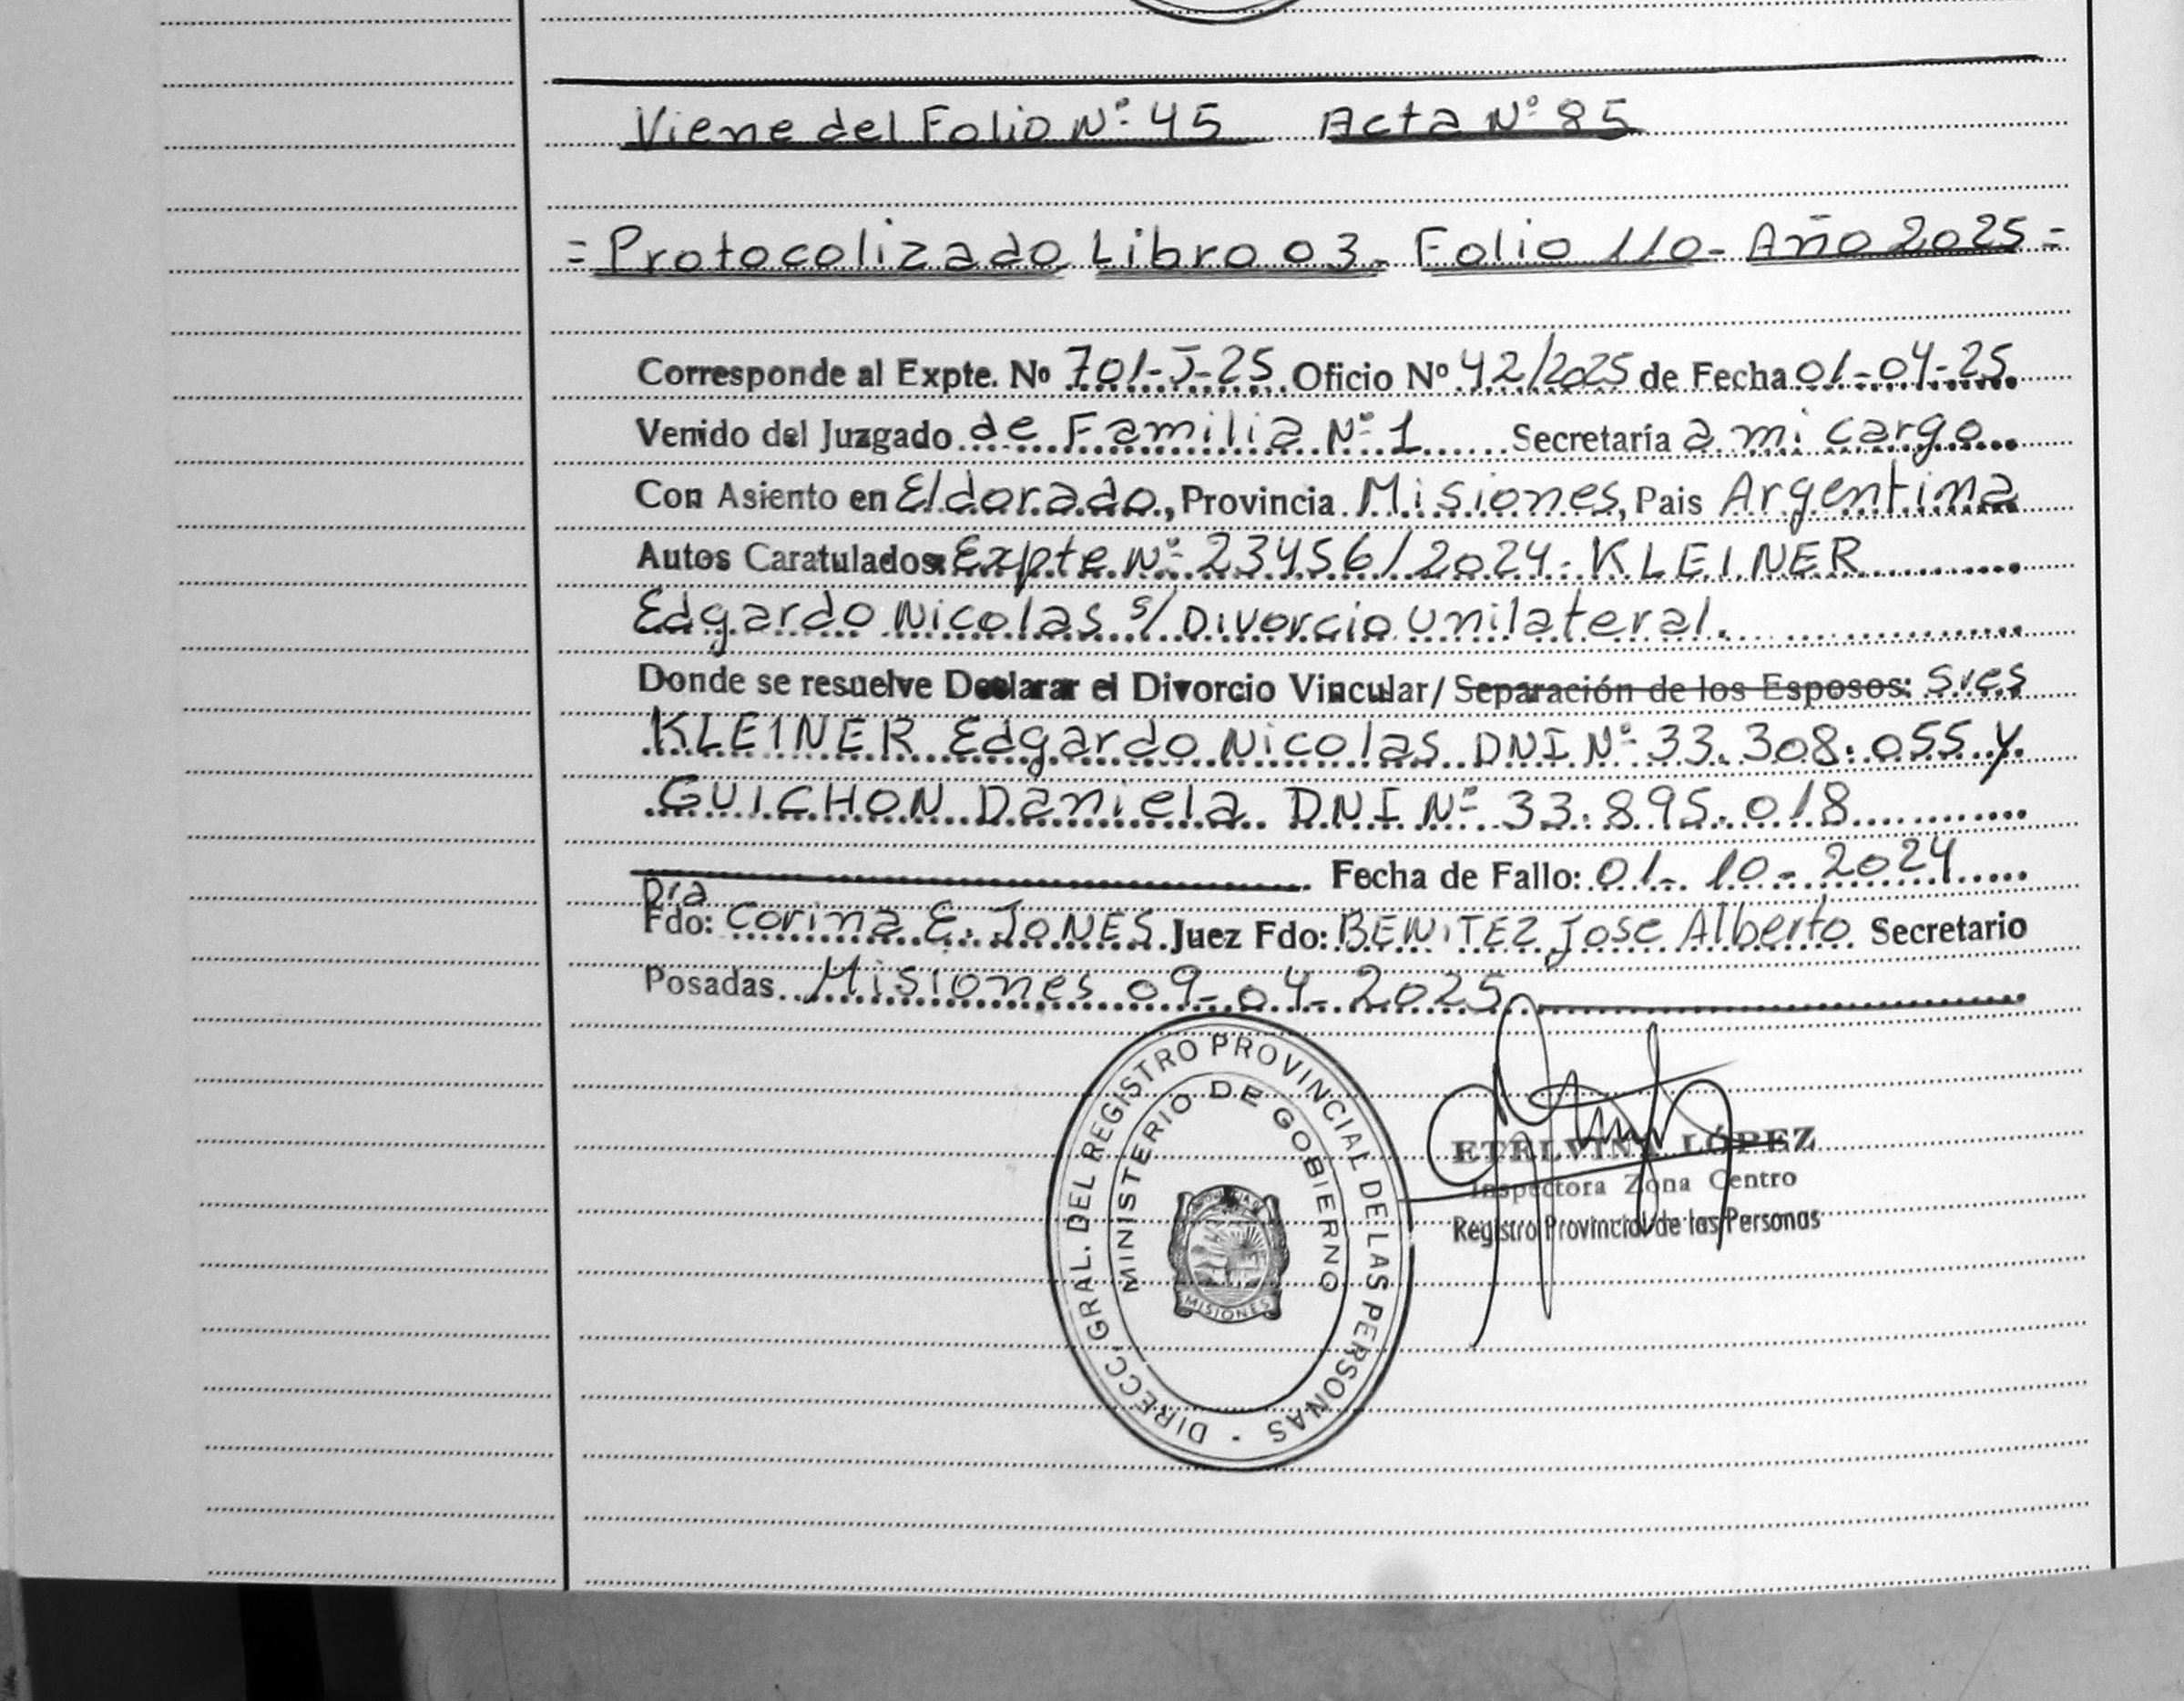 Viene del Folio Nº 45 Acta Nº 85
= Protocolizado Libro 03- Folio 110- Año 2025 =
Corresponde al Expte. Nº 701-J-25 Oficio Nº 42/2025 de Fecha 01-04-25
Venido del Juzgado de Familia Nº 1 Secretaría a mi cargo
Con Asiento en Eldorado, Provincia Misiones, Pais Argentina
Autos Caratulados: Expte Nº 23456/2024- KLEINER
Edgardo Nicolas s/ Divorcio unilateral.
Donde se resuelve Declarar el Divorcio Vincular/ Separación de los Esposos: Sres
KLEINER Edgardo Nicolas DNI Nº 33.308.055 y
GUICHON Daniela DNI Nº 33.895.018
Fecha de Fallo: 01-10-2024
Dra
Fdo: Corina E. JONES Juez Fdo: BENITEZ Jose Alberto Secretario
Posadas Misiones 09-04-2025
DIRECC. GRAL. DEL REGISTRO PROVINCIAL DE LAS PERSONAS -
MINISTERIO DE GOBIERNO
MISIONES
ETELVINA LÓPEZ
Inspectora Zona Centro
Registro Provincial de las Personas